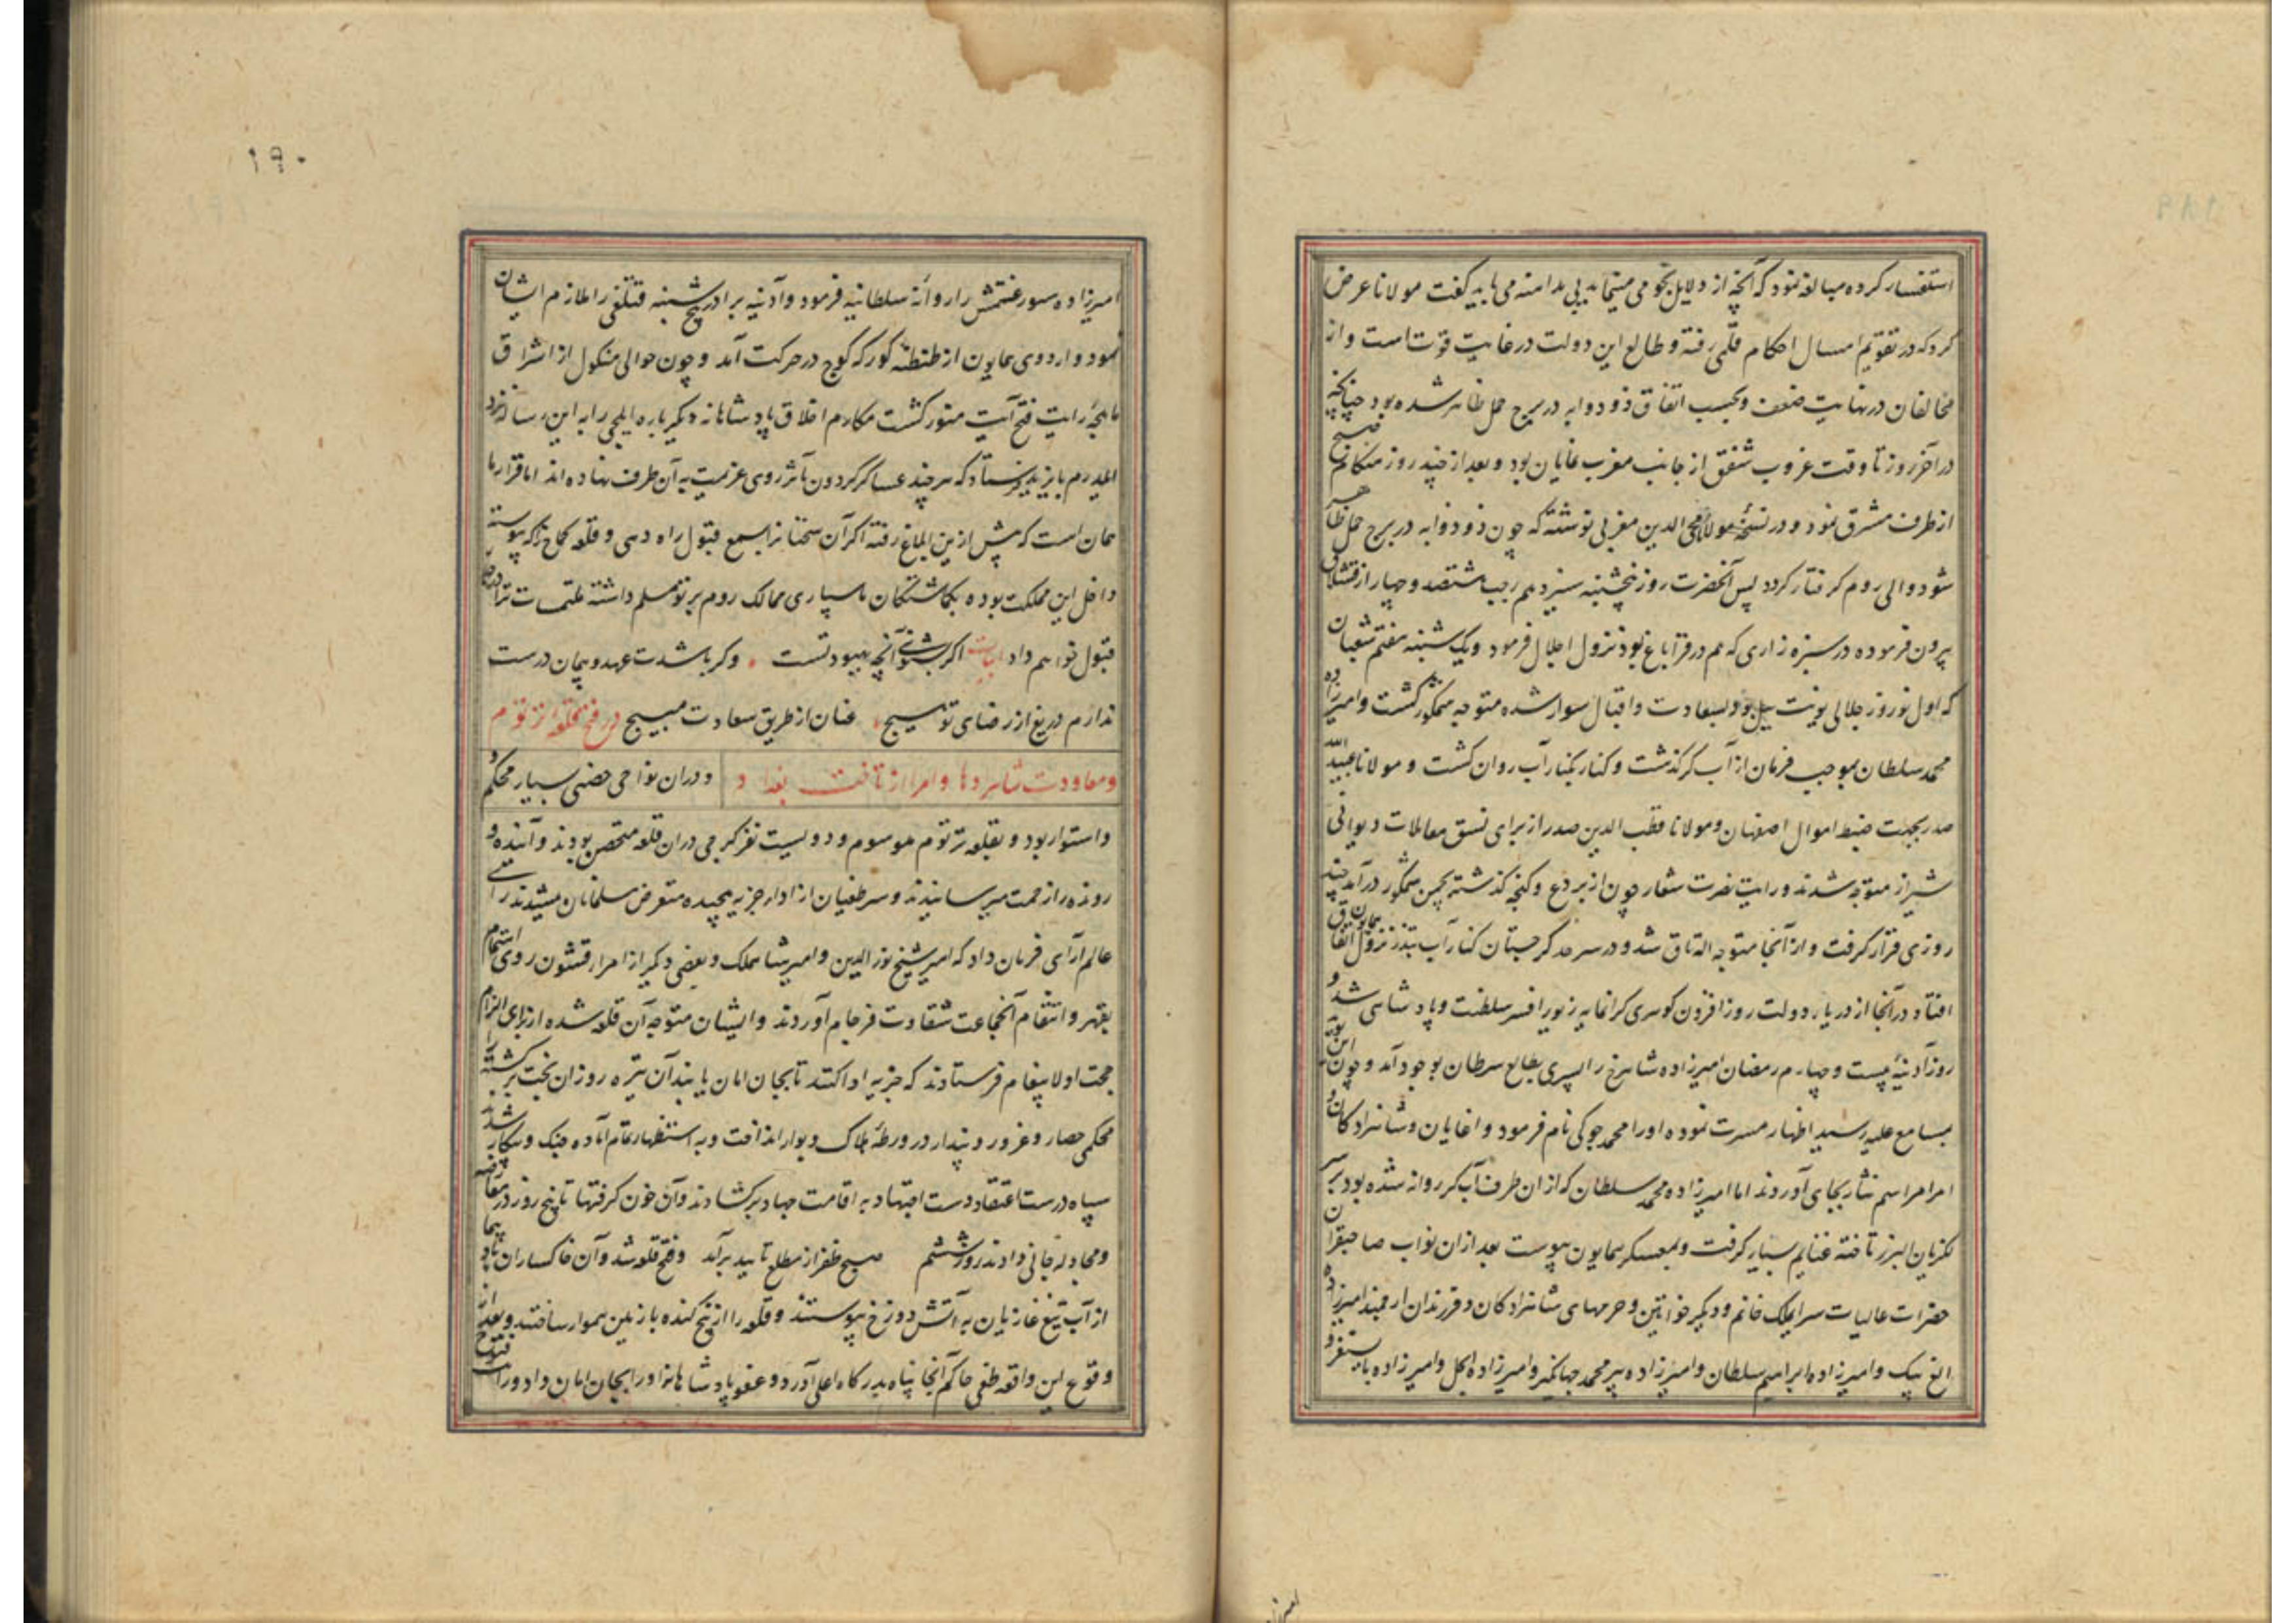 استفسار کرده مبالغه نمود که آنچه از دلایل نجومی بدانسته می باید گفت مولانا عرض
کرد که در تقویم امسال احکام قلمی رفته و طالع این دولت در غایت قوت است و از
مخالفان در نهایت ضعف و بحسب اتفاق ذو ذوابه در برج حمل ظاهر شده بود چنانچه
در آخر روز تا وقت غروب شفق از جانب مغرب نمایان بود و بعد از چند روز هنکام صبح
از طرف مشرق نمود و در نسخهٔ مولانا محی الدین مغربی نوشته که چون ذو ذوابه در برج حمل ظاهر
شود والی روم کرفتار کردد پس آنحضرت روز پنجشنبه سیزدهم رجب هشتصد و چهار از قشلاق
بیرون فرموده در سبزه زاری که هم در قراباغ بود نزول اجلال فرمود و یک شنبه هفتم شعبان
که اول نوروز جلالی بود بسعادت و اقبال سوار شده متوجه شمکور کشت و امیرزاده
محمد سلطان بموجب فرمان از آب کر کذشت و کنار بکنار آب روان کشت و مولانا عبید الله
صدر بجهت ضبط اموال اصفهان و مولانا قطب الدین صدر از برای نسق معاملات دیوانی
شیراز متوجه شدند و رایت نصرت شعار چون از بردع و کنجه کذشته بچمن شمکور در آمد چند
روزی قرار کرفت و از آنجا متوجه اله تاق شد و در سرحد کرجستان کنار آب تبدر نزول همایون اتفاق
افتاد در آنجا از دریای دولت روز افزون کوهری کرانمایه زیور افسر سلطنت و پادشاهی شد و
روز آدینه بیست و چهارم رمضان امیرزاده شاهرخ را پسری بطالع سرطان بوجود آمد و چون این نوید
بمسامع علیه رسید اظهار مسرت نموده او را محمد جوکی نام فرمود و اغایان و شاهزادکان و
امرا مراسم نثار بجای آوردند اما امیرزاده محمد سلطان که از ان طرف آب کر روانه شده بود بر سر
لکزیان البرز تاخته غنایم بسیار کرفت و بمعسکر همایون پیوست بعد از ان نواب صاحبقران
حضرات عالیات سرایملک خانم و دیکر خواتین و حرمهای شاهزادکان و فرزندان ارجمند امیرزاده
الغ بیک و امیرزاده ابراهیم سلطان و امیرزاده پیر محمد جهانکیر و امیرزاده ایجل و امیرزاده بایسنغر و
۱۹۰
امیرزاده سورغتمش را روانهٔ سلطانیه فرمود و آدینه برادر پنج شنبه قتلغی را ملازم ایشان
نمود و اردوی همایون از طنطنه کورکه کوچ در حرکت آمد و چون حوالی منکول از اشراق
ماهچهٔ رایت فتح آیت منور کشت مکارم اخلاق پادشاهانه دیکر باره ایلچی را به این رساله نزد
ایلدرم بایزید فرستاد که هر چند عساکر کردون مآثر روی عزیمت به آن طرف نهاده اند اما قرار ما
همان است که پیش ازین ابلاغ رفته اکر آن سخنانرا بسمع قبول راه دهی و قلعه کماخ را که پیوسته
داخل این مملکت بوده بکماشتکان ما سپاری ممالک روم بر تو مسلم داشته ملتمسات ترا
قبول خواهم داد ابیات اکر بشنوی آنچه بهبود تست • وکر باشدت عهد و پیمان درست
ندارم دریغ از رضای تو هیچ • عنان از طریق سعادت مپیچ در فتح قلعه ترتوم
و معاودت شاهزادها و امرا از تاخت بغداد و در ان نواحی حصنی بسیار محکم و
و استوار بود و بقلعه ترتوم موسوم و دویست نفر کرجی در ان قلعه متحصن بودند و آینده و
رونده را زحمت میرسانیدند و سر طغیان از ادای جزیه پیچیده متعرض مسلمانان میشدند رای
عالم آرای فرمان داد که امیر شیخ نورالدین و امیر شاهملک و بعضی دیکر از امرا و قشون روی اهتمام
بقهر و انتقام آنجماعت شقاوت فرجام آوردند و ایشان متوجه آن قلعه شده از برای الزام
حجت اولا پیغام فرستادند که جزیه ادا کنند تا بجان امان یابند آن تیره روزان بخت برکشته
محکمی حصار و غرور و پندار در ورطهٔ هلاک و بوار انداخت و به استظهار تمام آماده جنک و پیکار شدند
سپاه درست اعتقاد دست اجتهاد به اقامت جهاد برکشادند و آن خون کرفتها تا پنج روز در معارضه
و مجادله جانی دادند روز ششم صبح ظفر از مطلع تایید برآمد و فتح قلعه شد و آن خاکساران باد پیما
از آب تیغ غازیان به آتش دوزخ پیوستند و قلعه را از بیخ کنده با زمین هموار ساختند و بعد از
وقوع این واقعه طغی حاکم آنجا پناه بدرکاه اعلی آورد و عفو پادشاهانه او را بجان امان داد و در اثنا